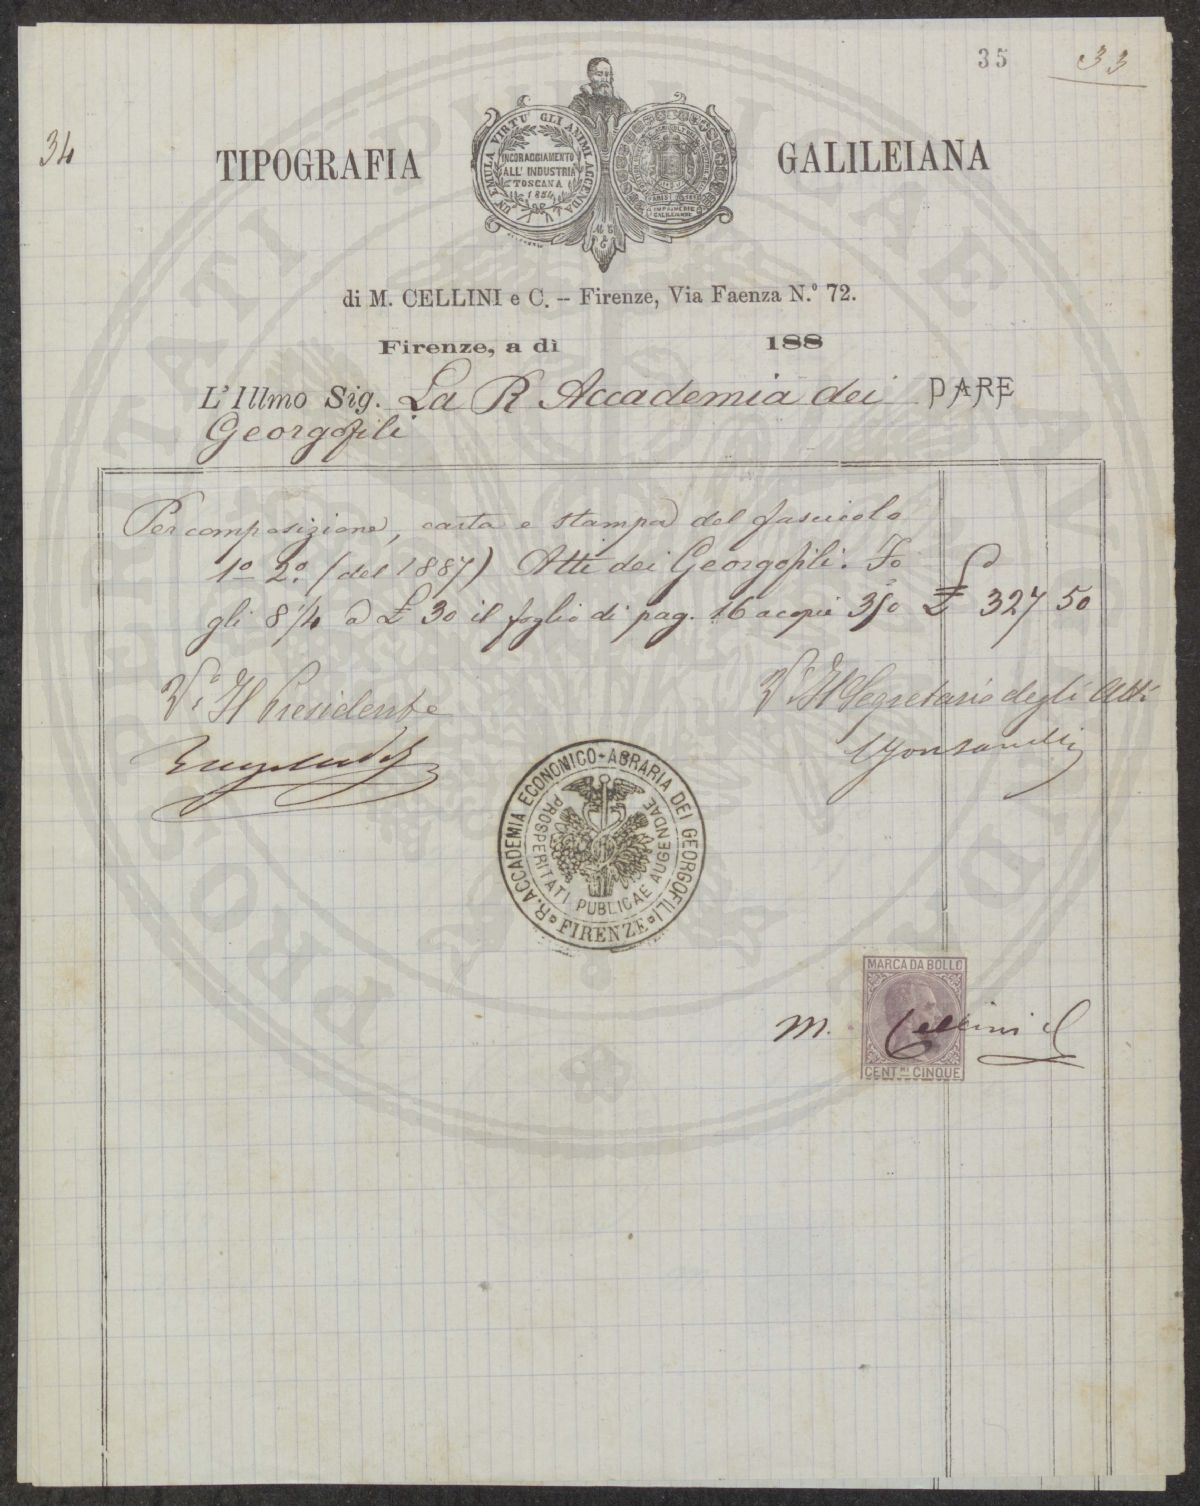 35
33
34
TIPOGRAFIA GALILEIANA
UN' EMULA VIRTU' GLI ANIMI ACCENDA
INCORAGGIAMENTO
ALL' INDUSTRIA
TOSCANA
1854
di M. CELLINI e C. – Firenze, Via Faenza N.° 72.
Firenze, a dì 188
L'Illmo Sig. La R Accademia dei DARE
Georgofili
Per composizione, carta e stampa del fascicolo
1° 2.° (del 1887) Atti dei Georgofili. Fo
gli 8 1/4 a £ 30 il foglio di pag. 16 a copie 350 £ 327 50
V.° Il Presidente
V.° Il Segretario degli Atti
R. ACCADEMIA ECONOMICO-AGRARIA DEI GEORGOFILI
PROSPERITATI PUBLICAE AUGENDAE
FIRENZE
MARCA DA BOLLO
M. Cellini C
CENT.MI CINQUE
PROSPERITATI PUBLICAE AUGENDAE